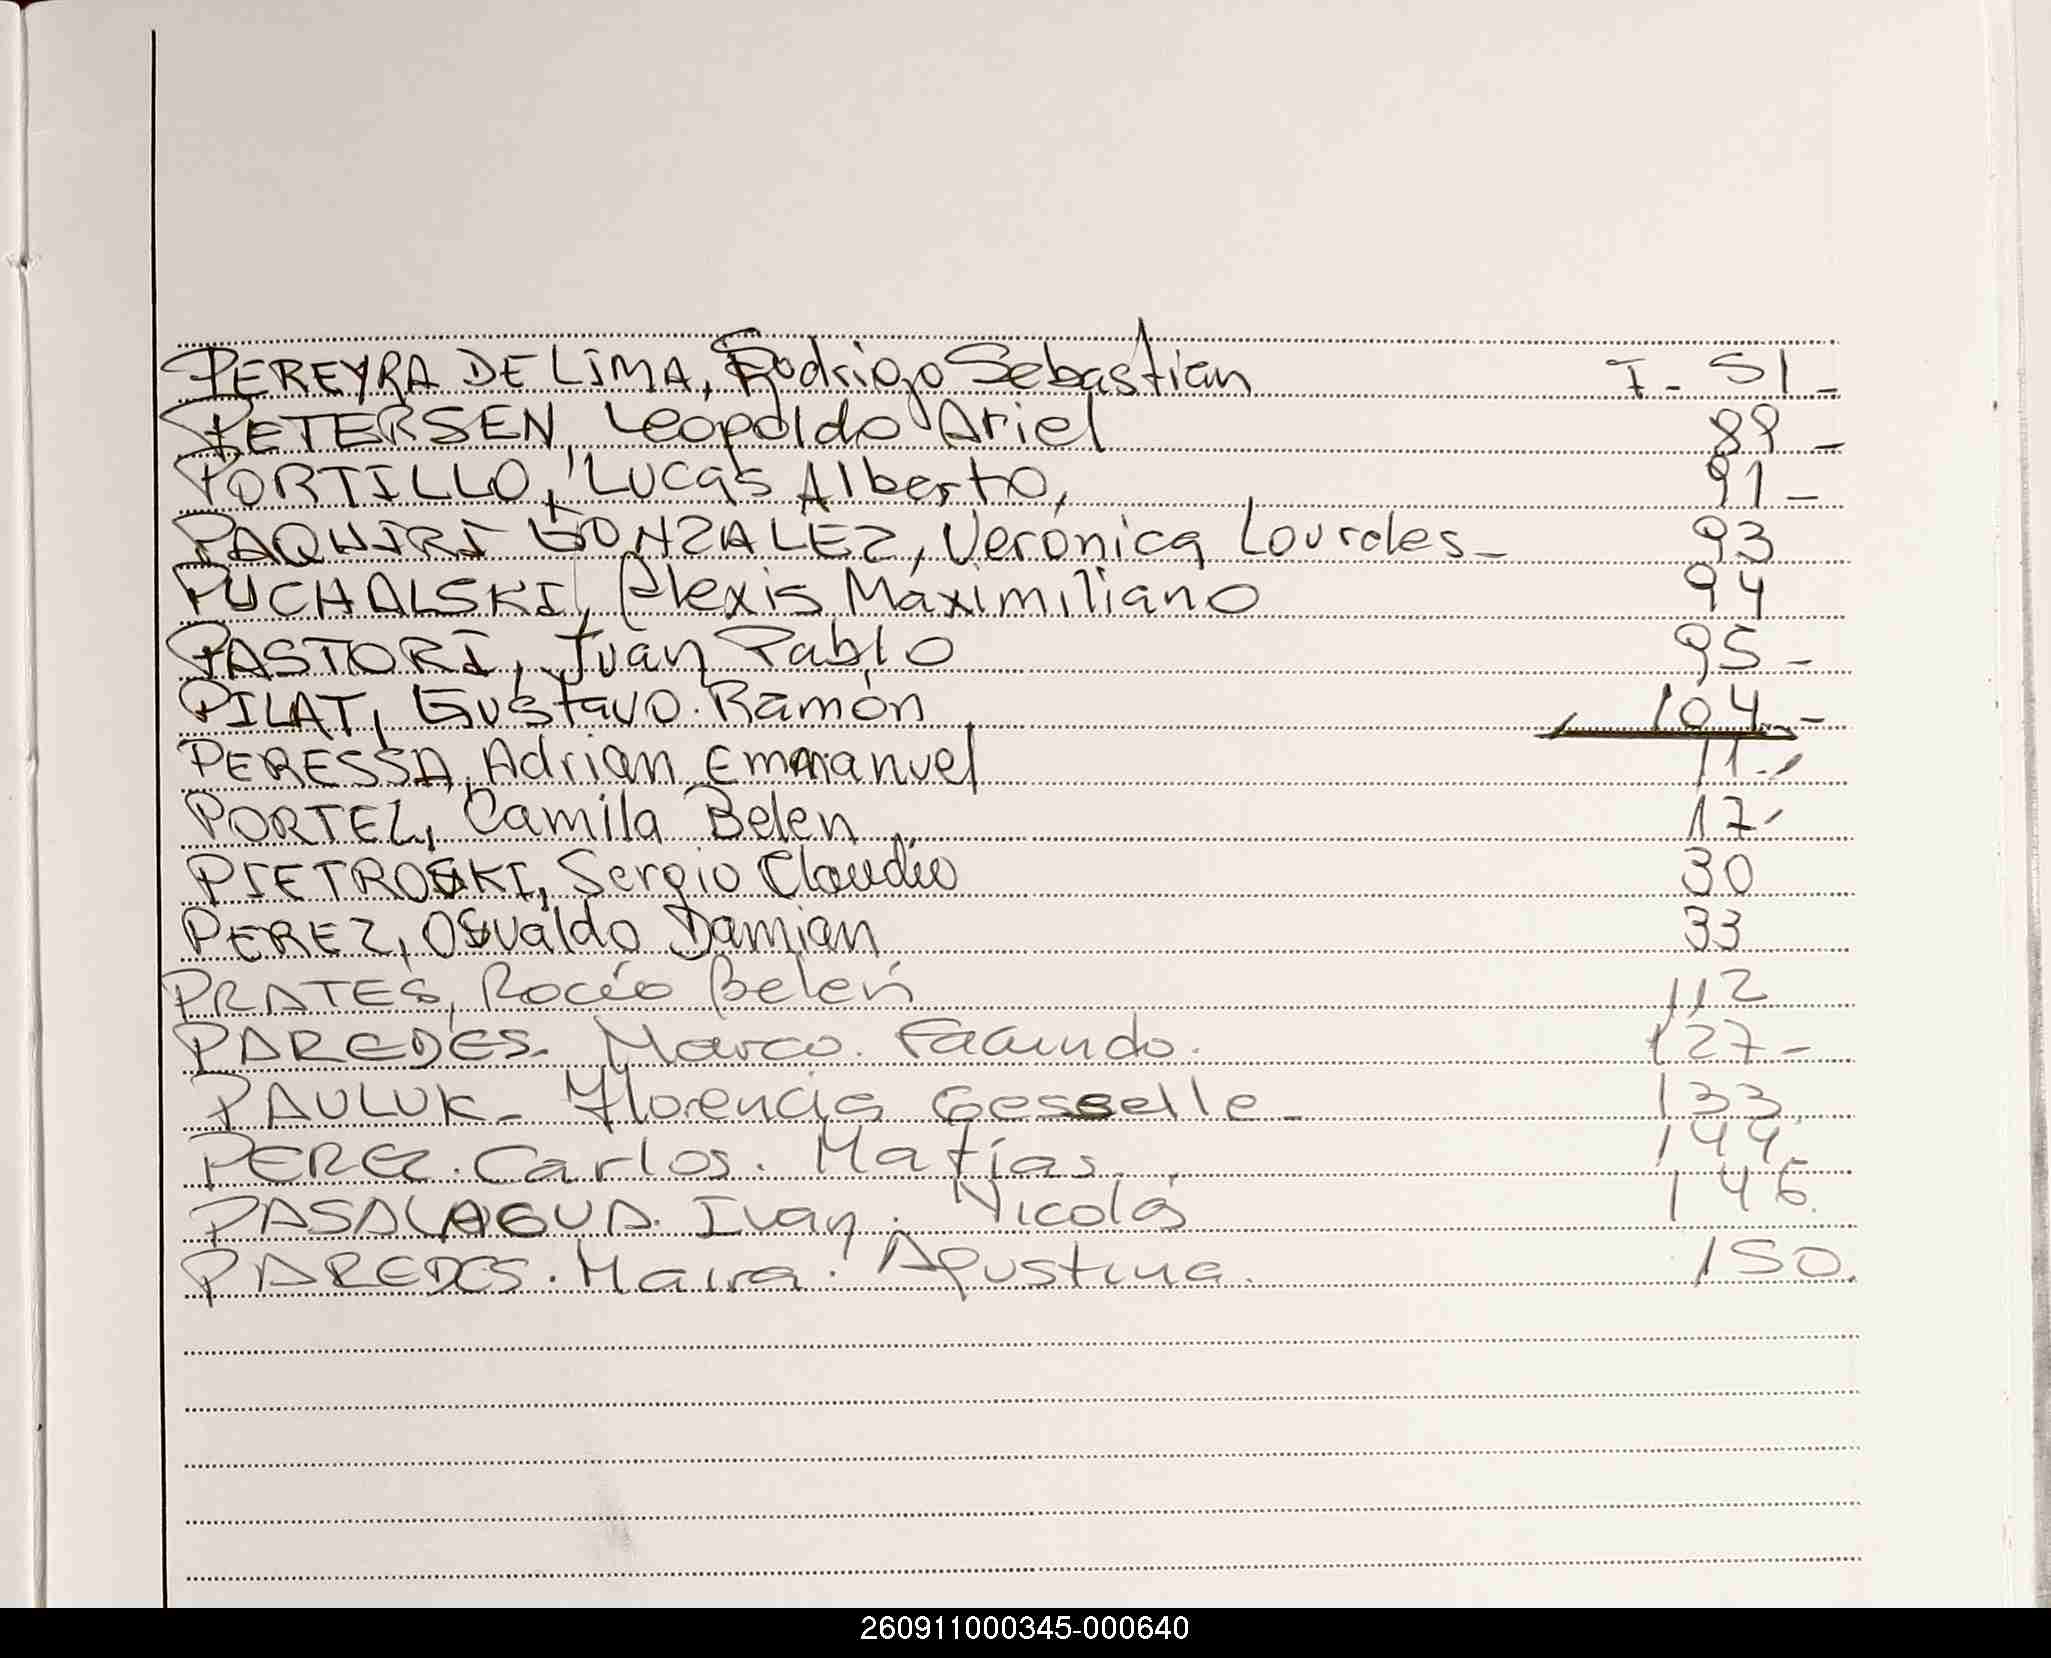 PEREYRA DE LIMA, Rodrigo Sebastian F. 51-
PETERSEN, Leopoldo Ariel 89-
PORTILLO, Lucas Alberto, 91-
PAQUIRI GONZALEZ, Verónica Lourdes- 93
PUCHALSKI, Alexis Maximiliano 94
PASTORI, Juan Pablo 95-
PILAT, Gustavo Ramón 104-
PERESSA, Adrian Emmanuel 11-
PORTEL, Camila Belen 17-
PIETROSKI, Sergio Claudio 30
PEREZ, Osvaldo Damian 33
PRATES, Rocío Belén 112
PAREDES. Marco. Facundo. 127-
PAULUK- Florencia Gesselle- 133.
PEREZ. Carlos. Matías. 144.
PASALAGUA. Ivan. Nicolás 146.
PAREDES. Maira. Agustina. 150.
260911000345-000640